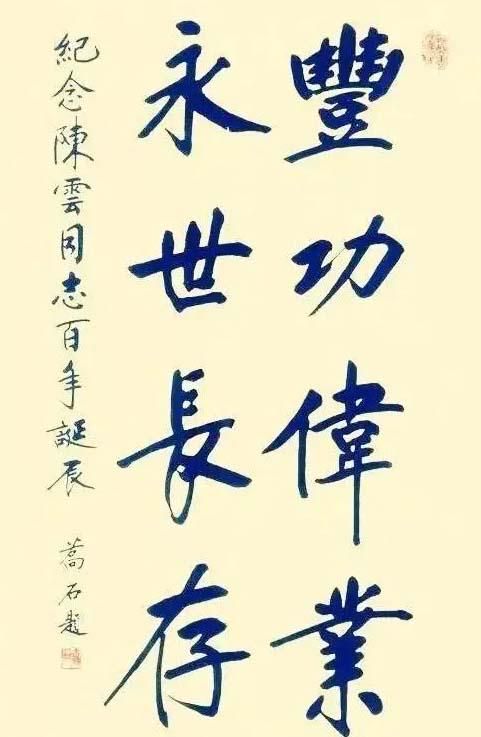 豐功偉業
永世長存
紀念陳雲同志百年誕辰 蒿石題